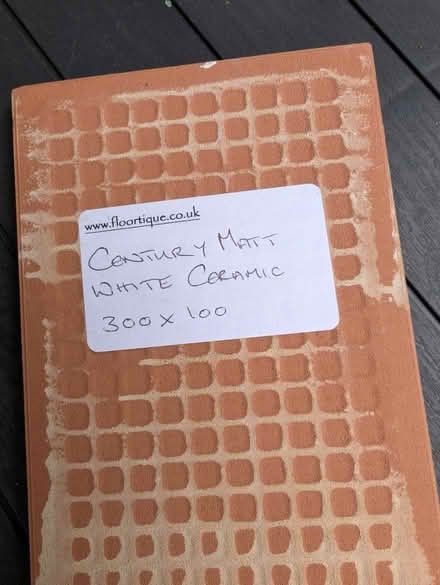 www.floortique.co.uk
CENTURY MATT
WHITE CERAMIC
300 x 100